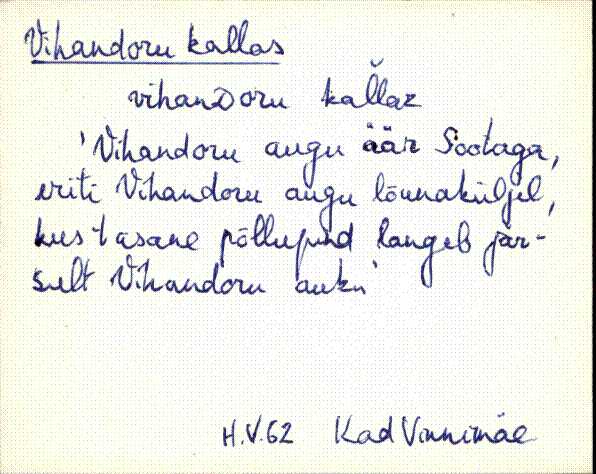 Vihandoru kallas
vihanDoru kal̆laz
'Vihandoru augu äär Sootaga,
eriti Vihandoru augu lõunaküljel,
kus tasane põllupind langeb jär-
sult Vihandoru auku'
H.V.62 Kad Vinnimäe